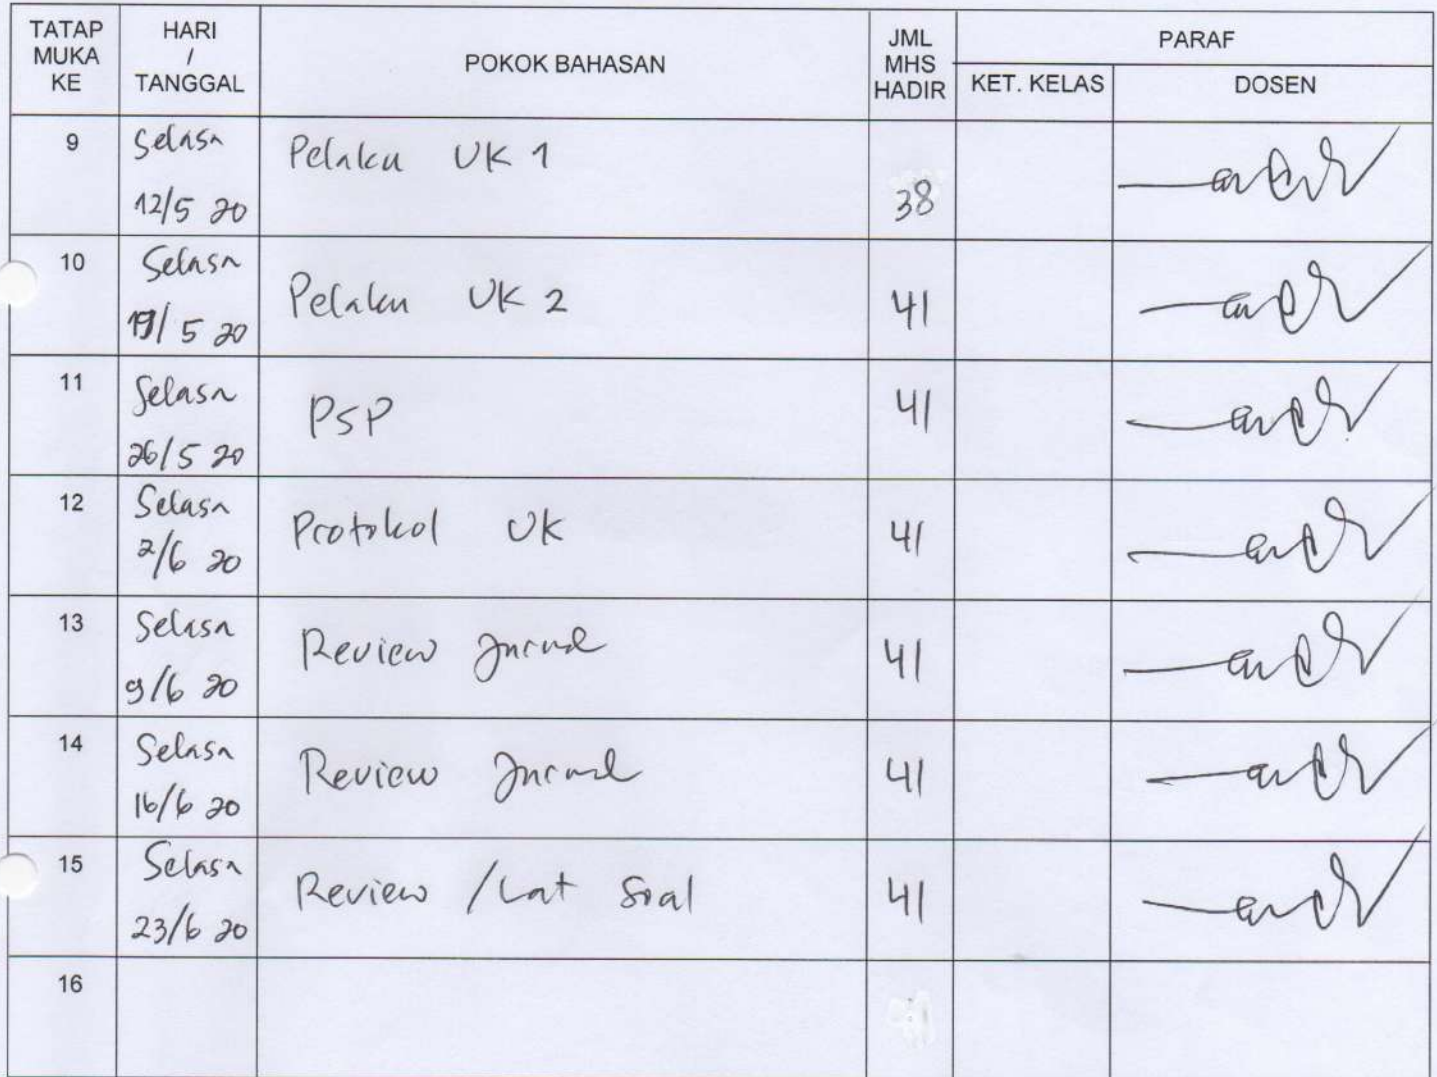 TATAP MUKA KE HARI / TANGGAL POKOK BAHASAN JML MHS HADIR PARAF
KET. KELAS DOSEN
9 Selasa 12/5 20 Pelaku UK 1 38
10 Selasa 19/5 20 Pelaku UK 2 41
11 Selasa 26/5 20 PSP 41
12 Selasa 2/6 20 Protokol UK 41
13 Selasa 9/6 20 Review Jurnal 41
14 Selasa 16/6 20 Review Jurnal 41
15 Selasa 23/6 20 Review / Lat Soal 41
16